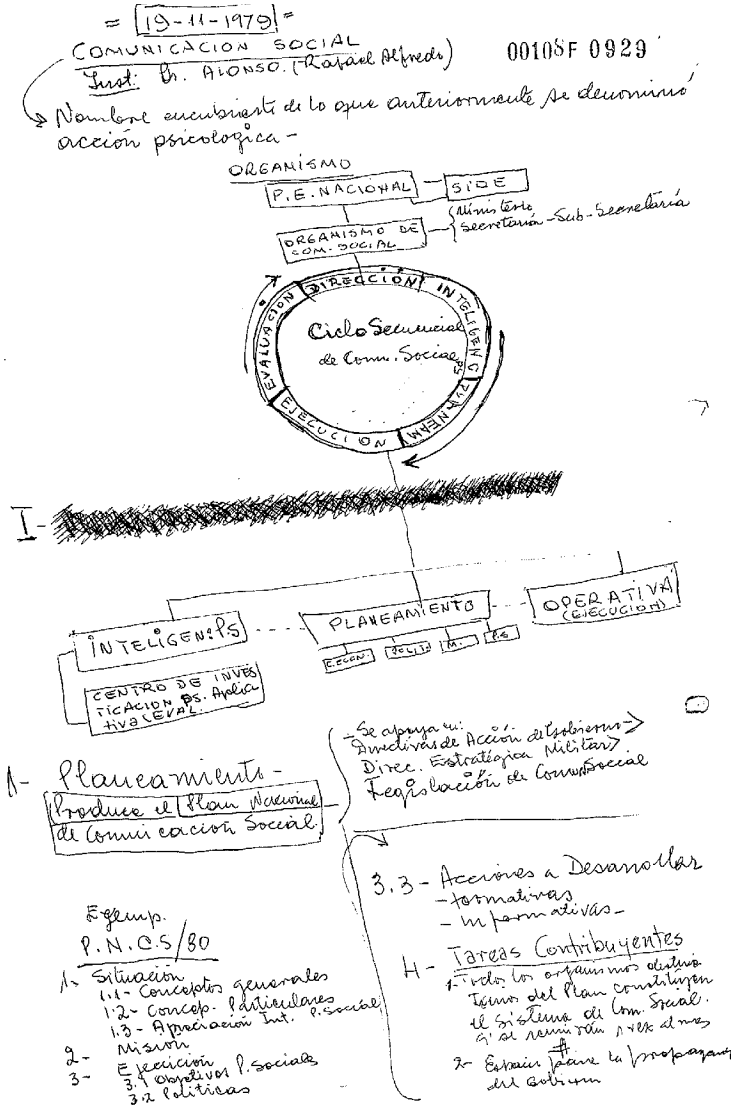 = 19-11-1979 =
COMUNICACION SOCIAL
Inst: Dr. ALONSO. (Rafael Alfredo)
00108F 0929
Nombre encubriente de lo que anteriormente se denominó
acción psicologica -
ORGANISMO
P.E. NACIONAL
SIDE
ORGANISMO DE
COM. SOCIAL
Ministerio
Secretaría - Sub-Secretaría
EVALUACION DIRECCIÓN INTELIGENC PS PLANEAM EJECUCION
Ciclo Secuencial
de Com. Social
I-
INTELIGEN: PS
PLANEAMIENTO
OPERATIVA
(EJECUCION)
E.ECON. POLIT. M. P.S
CENTRO DE INVES
TIGACION PS. Aplica
tiva (EVAL.
1- Planeamiento -
Produce el Plan Nacional
de Comunicación Social.
- Se apoya en:
Directivas de Acción de Gobierno
Direc. Estratégica Militar
Legislación de Comun Social
3.3- Acciones a Desarrollar
- formativas
- informativas -
Ejemp.
P.N.C.S/80
1- Situación
1.1- Conceptos generales
1.2- Concep. Particulares
1.3- Apreciación Int. P. Social
2- Misión
3- Ejecición
3.1 objetivos P. Sociales
3.2 Politicas
4- Tareas Contribuyentes
1- Todos los organismos destina
tarios del Plan constituyen
el Sistema de Com. Social.
se reunirán 1 vez al mes
2- para la propagan
del Gobierno